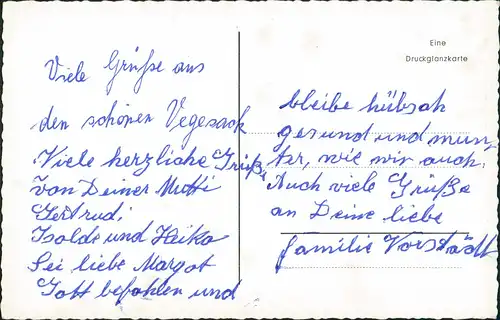 Eine
Druckglanzkarte
Viele Grüße aus
den schönen Vegesack
Viele herzliche Grüße
von Deiner Mutti
Gertrudi
Isolde und Heiko
Sei liebe Margot
Gott befohlen und
bleibe hübsch
gesund und mun-
ter, wie wir auch.
Auch viele Grüße
an Deine liebe
familie Vorstädt